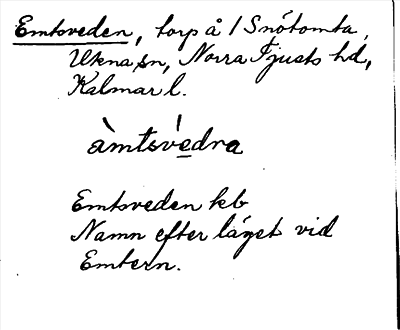 Emtsveden, torp å 1 Snötomta,
Ukna sn, Norra Tjusts hd,
Kalmar l.
àmtsve̱dra
Emtsveden kb
Namn efter läget vid
Emtern.